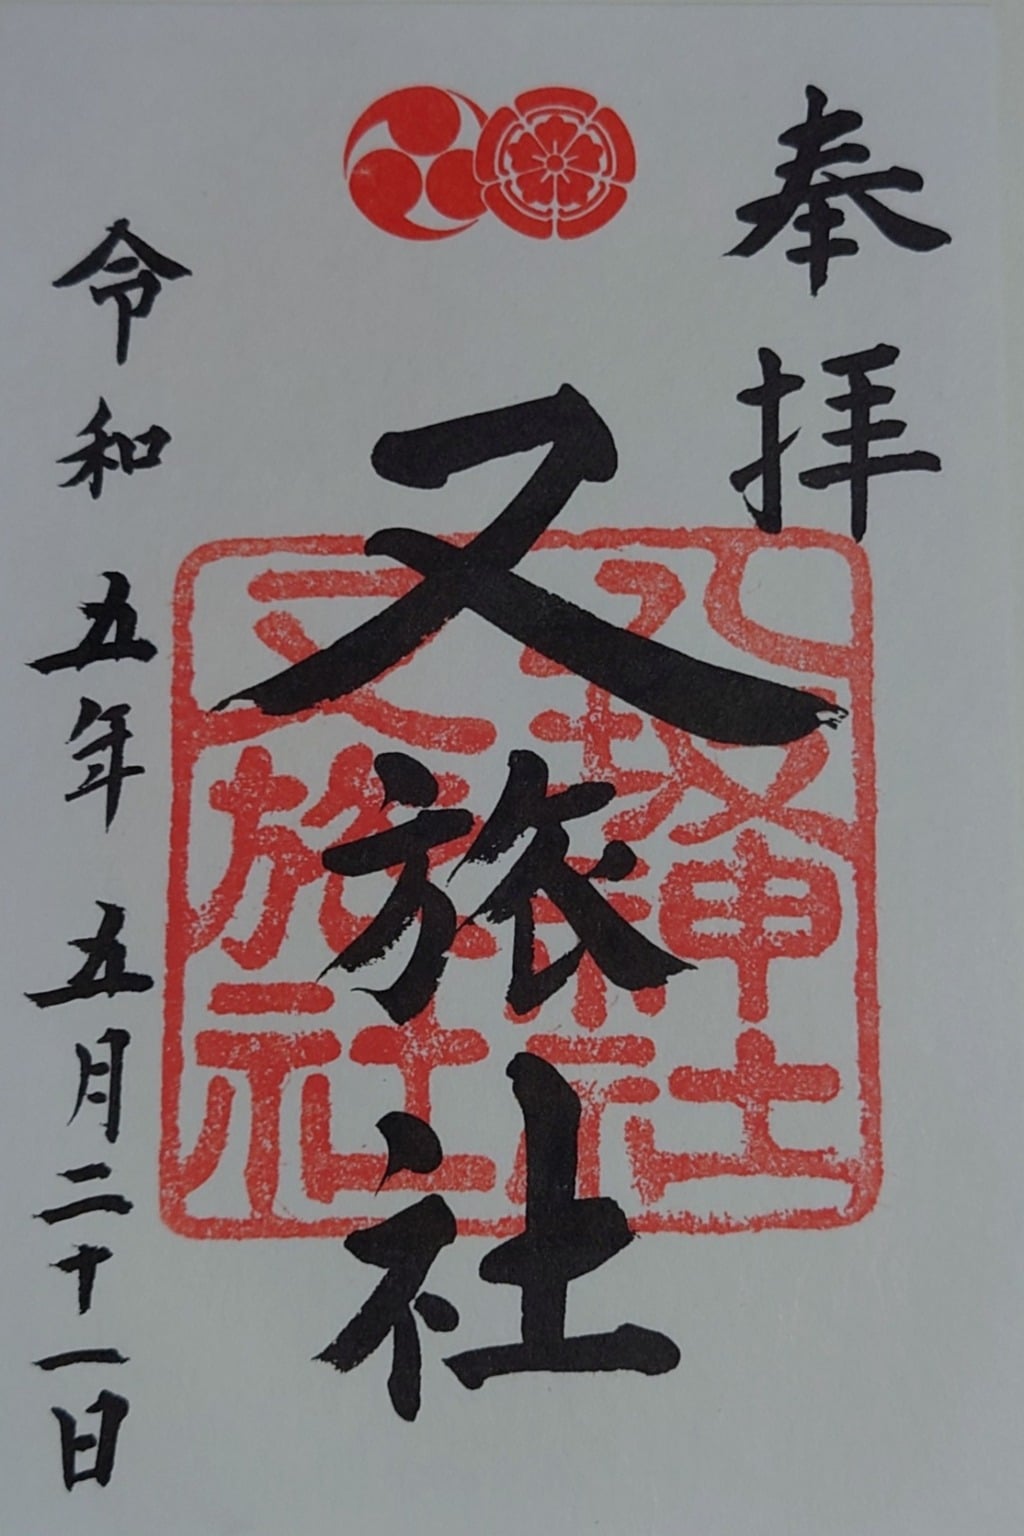 奉拝
又旅社
八坂神社
又旅社
令和五年五月二十一日